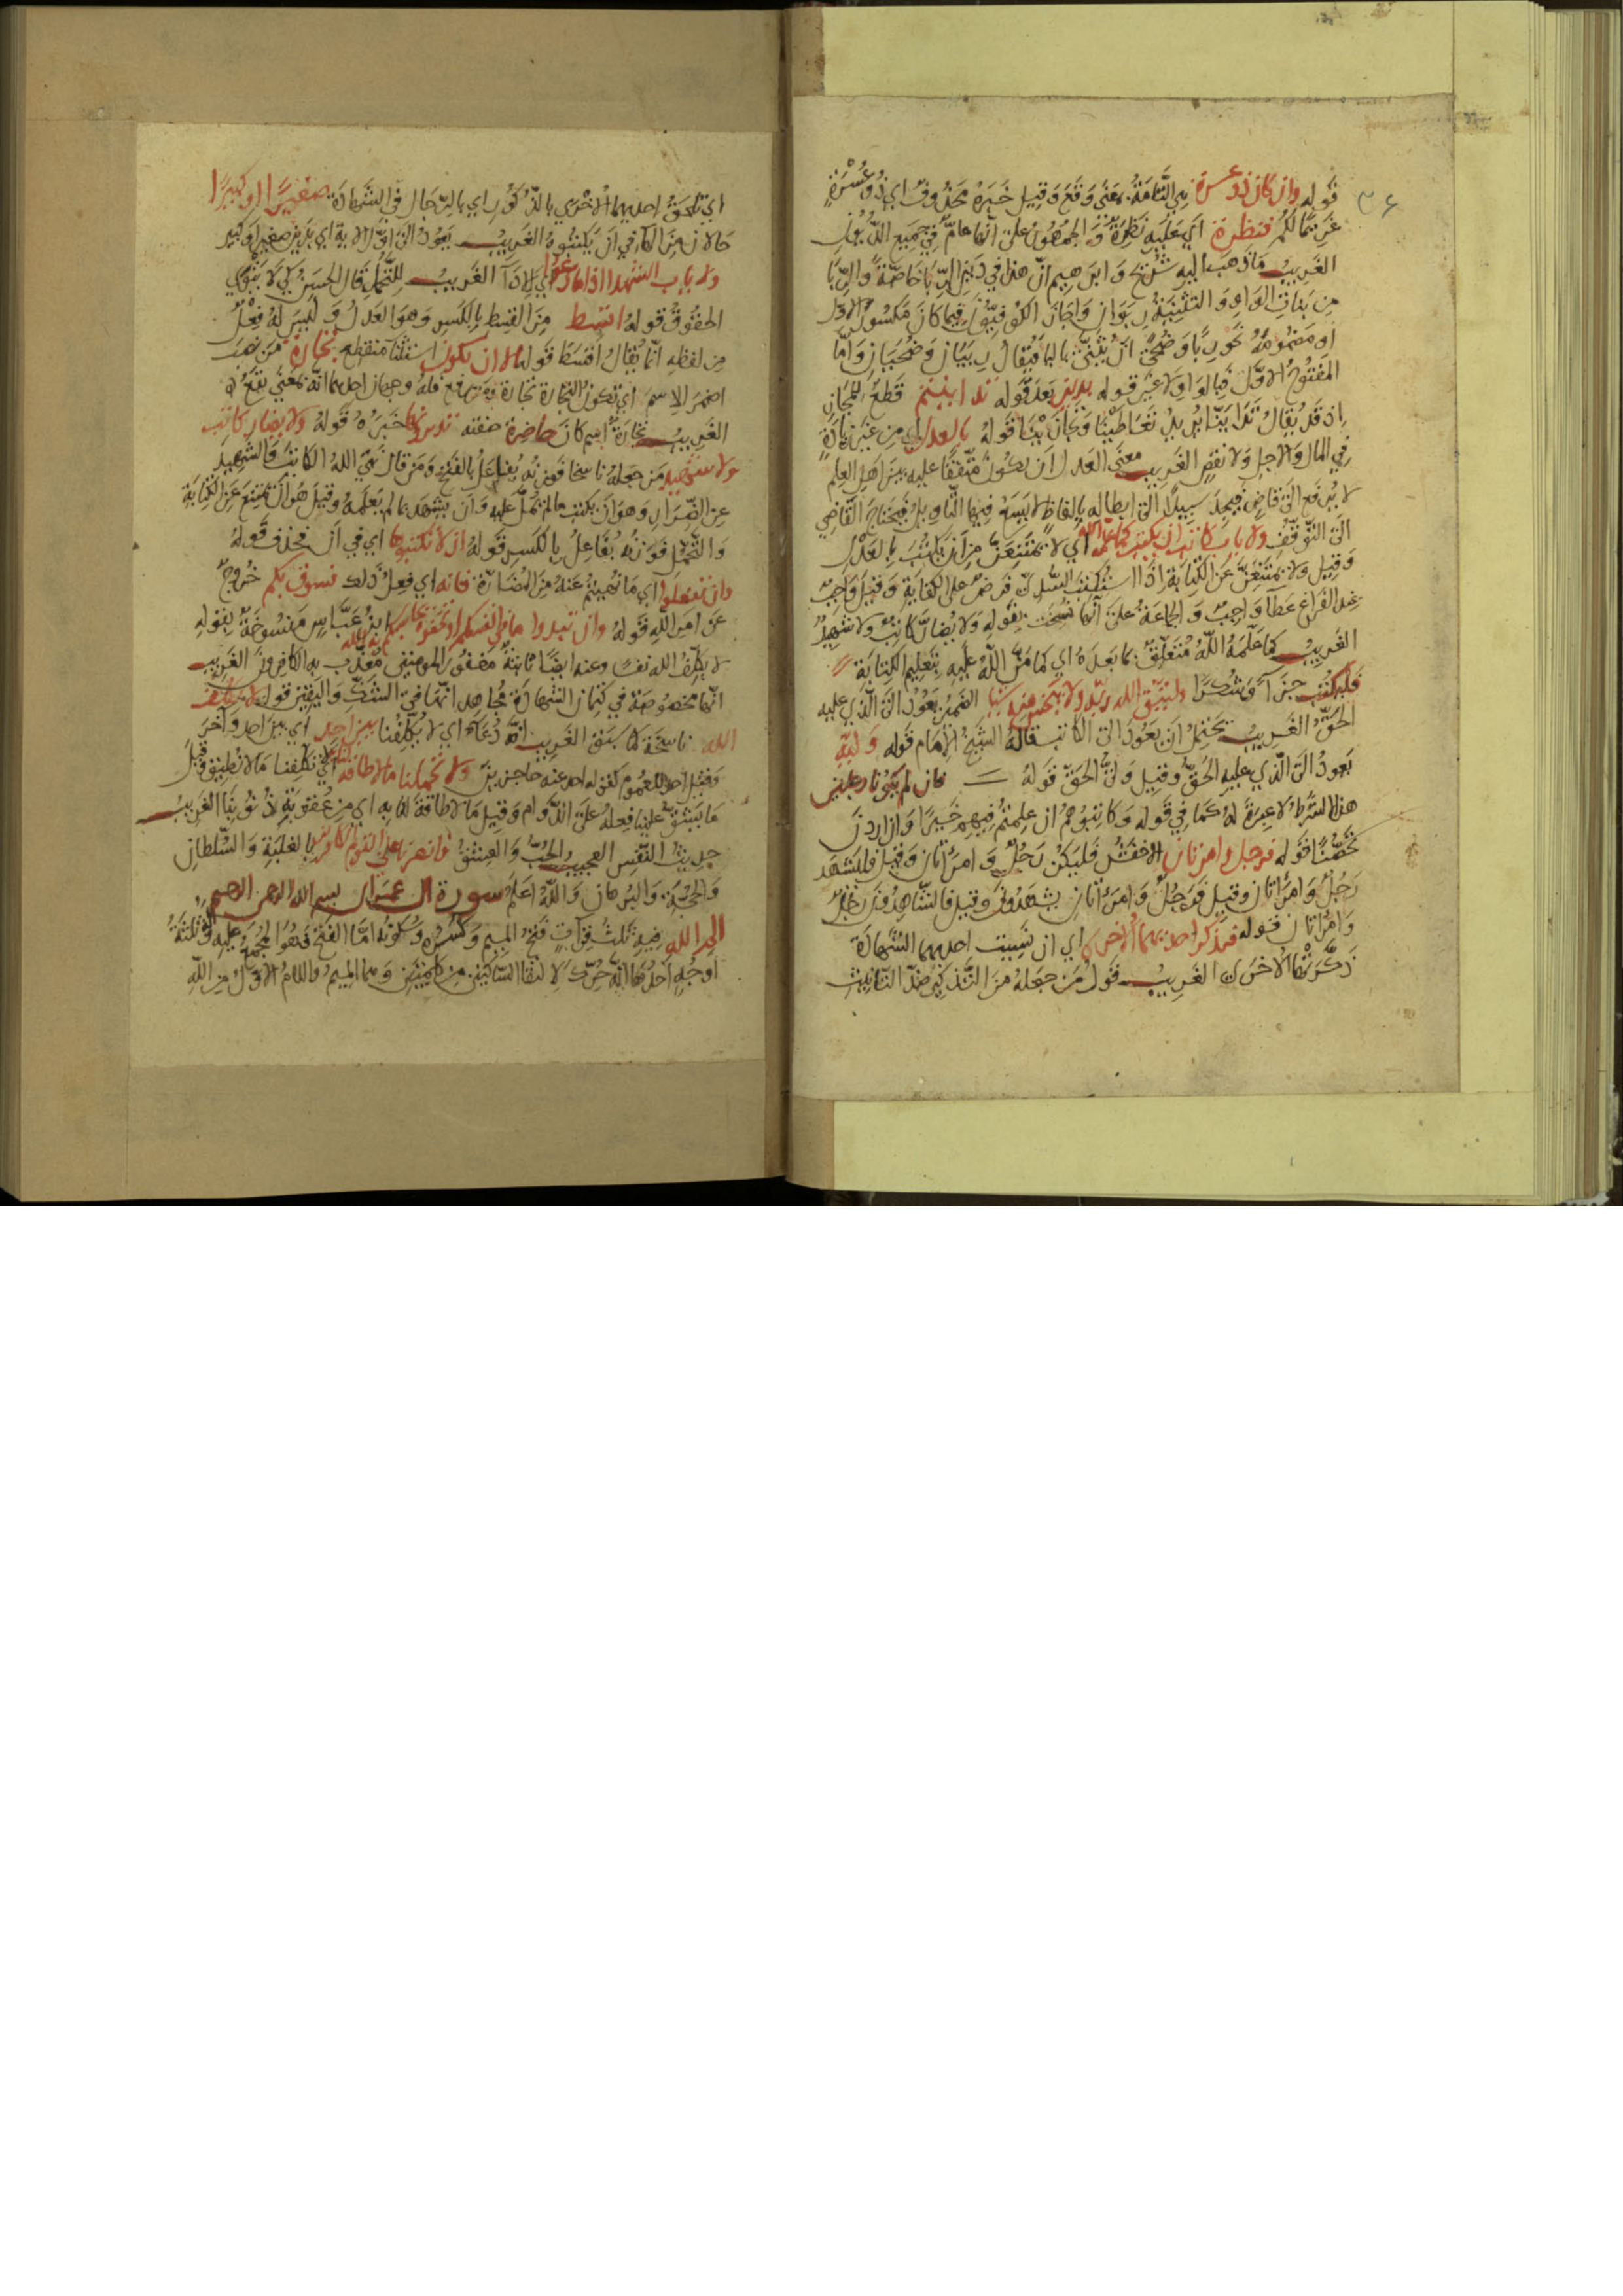 ٣٤
قوله وان كان ذو عسرة هي التامة بمعنى وقع وقيل خبره محذوف اي ذو عسرة
غريما لكم فنظرة اي عليه نظرة والجمهور على انها عام في جميع الديون
الغريب ما ذهب اليه شريح وابرهيم ان هذا في دين الربا خاصة والربا
من بنات الواو والتثنية ربوان واجاز الكوفيون فيما كان مكسور الاول
او مضمومه نحو ربا وضحى ان يثنى باليا فيقال ربيان وضحيان واما
المفتوح الاول فبالواو لا غير قوله بدين بعد قوله تداينتم قطع للمجاز
اذ قد يقال تداينا يريد تعاطينا وتجازينا قوله بالعدل اي من غير زيادة
في المال والاجل ولا نقص الغريب معنى العدل ان يكون متفقا عليه بين اهل العلم
لا يرفع الى قاض فيجد سبيلا الى ابطاله بالفاظ لا يسع فيها التاويل فيحتاج القاضي
الى التوقف ولا ياب كاتب ان يكتب كما علمه الله اي لا يمتنعن من ان يكتب بالعدل
وقيل ولا يمتنعن عن الكتابة اذا استكتب السدي فرض على الكفاية وقيل واجب
عند الفراغ عطا واجب والجماعة على انها نسخت بقوله ولا يضار كاتب ولا شهيد
الغريب كما علمه الله متعلق بما بعده اي كما من الله عليه بتعليم الكتابة
فليكتب جزآ وشكرا وليتق الله ربه ولا يبخس منه شيا الضمير يعود الى الذي عليه
الحق الغريب يحتمل ان يعود الى الكاتب قاله الشيخ الامام قوله وليه
يعود الى الذي عليه الحق وقيل ولي الحق قوله فان لم يكونا رجلين
هذا الشرط لا عبرة له كما في قوله وكاتبوهم ان علمتم فيهم خيرا وان اردن
تحصنا قوله فرجل وامرتان الاخفش فليكن رجل وامراتان وقيل فليشهد
رجل وامراتان وقيل فرجل وامراتان يشهدون وقيل فالشاهدون رجل
وامراتان قوله فتذكر احديهما الاخرى اي ان نسيت احديهما الشهادة
ذكرتها الاخرى الغريب قول من جعله من التذكير ضد التانيث
اي تلحق احديهما الاخرى بالذكور اي بالرجال في الشهادة صغيرا او كبيرا
حالان من الها في ان يكتبوه الغريب يعود الى اول الاية اي بدين صغير او كبير
ولا ياب الشهدا اذا ما دعوا اي للادآ الغريب للتحمل قال الحسن لكي لا يتوي
الحقوق قوله اقسط من القسط بالكسر وهو العدل وليس له فعل
من لفظه انما يقال اقسط قوله الا ان تكون استثنآ منقطع تجارة من نصب
اضمر الاسم اي تكون التجارة تجارة ومن رفع فله وجهان احدهما انه بمعنى تقع
الغريب تجارة اسم كان حاضرة صفته تديرونها خبره قوله ولا يضار كاتب
ولا شهيد من جعله ناسخا فوزنه يفاعل بالفتح ومن قال نهى الله الكاتب والشهيد
عن الضرار وهو ان يكتب ما لم يمل عليه وان يشهد بما لم يعلمه وقيل هو ان يمتنع عن الكتابة
والتحمل فوزنه يفاعل بالكسر قوله ان لا تكتبوها اي في ان فحذف قوله
وان تفعلوا اي ما نهيتم عنه من المضارة فانه اي فعل ذلك فسوق بكم خروج
عن امر الله قوله وان تبدوا ما في انفسكم او تخفوه يحاسبكم به الله ابن عباس منسوخة بقوله
لا يكلف الله نفسا وعنه ايضا ثابتة مغفور للمومنين معذب به الكافرون الغريب
انها مخصوصة في كتمان الشهادة مجاهد انها في الشك واليقين قوله لا يكلف
الله ناسخة كما سبق الغريب انه دعآء اي لا يكلفنا بين احد اي بين احد واخر
وقيل احد للعموم كقوله احد عنه حاجزين ولا تحملنا ما لا طاقة لنا اي تكلفنا ما لا نطيق وقيل
ما يشق علينا فعله على الدوام وقيل ما لا طاقة لنا به اي من عقوبة ذنوبنا الغريب
حديث النفس العجيب الحب والعشق فانصرنا على القوم الكافرين بالغلبة والسلطان
والحجة والبرهان والله اعلم سورة ال عمران بسم الله الرحمن الرحيم
الم الله فيه ثلث قرآت فتح الميم وكسره وسكونه اما الفتح فهو المجمع عليه وله ثلثة
اوجه احدها انه حرك لالتقا الساكنين من كلمتين وهما الميم واللام الاول من الله